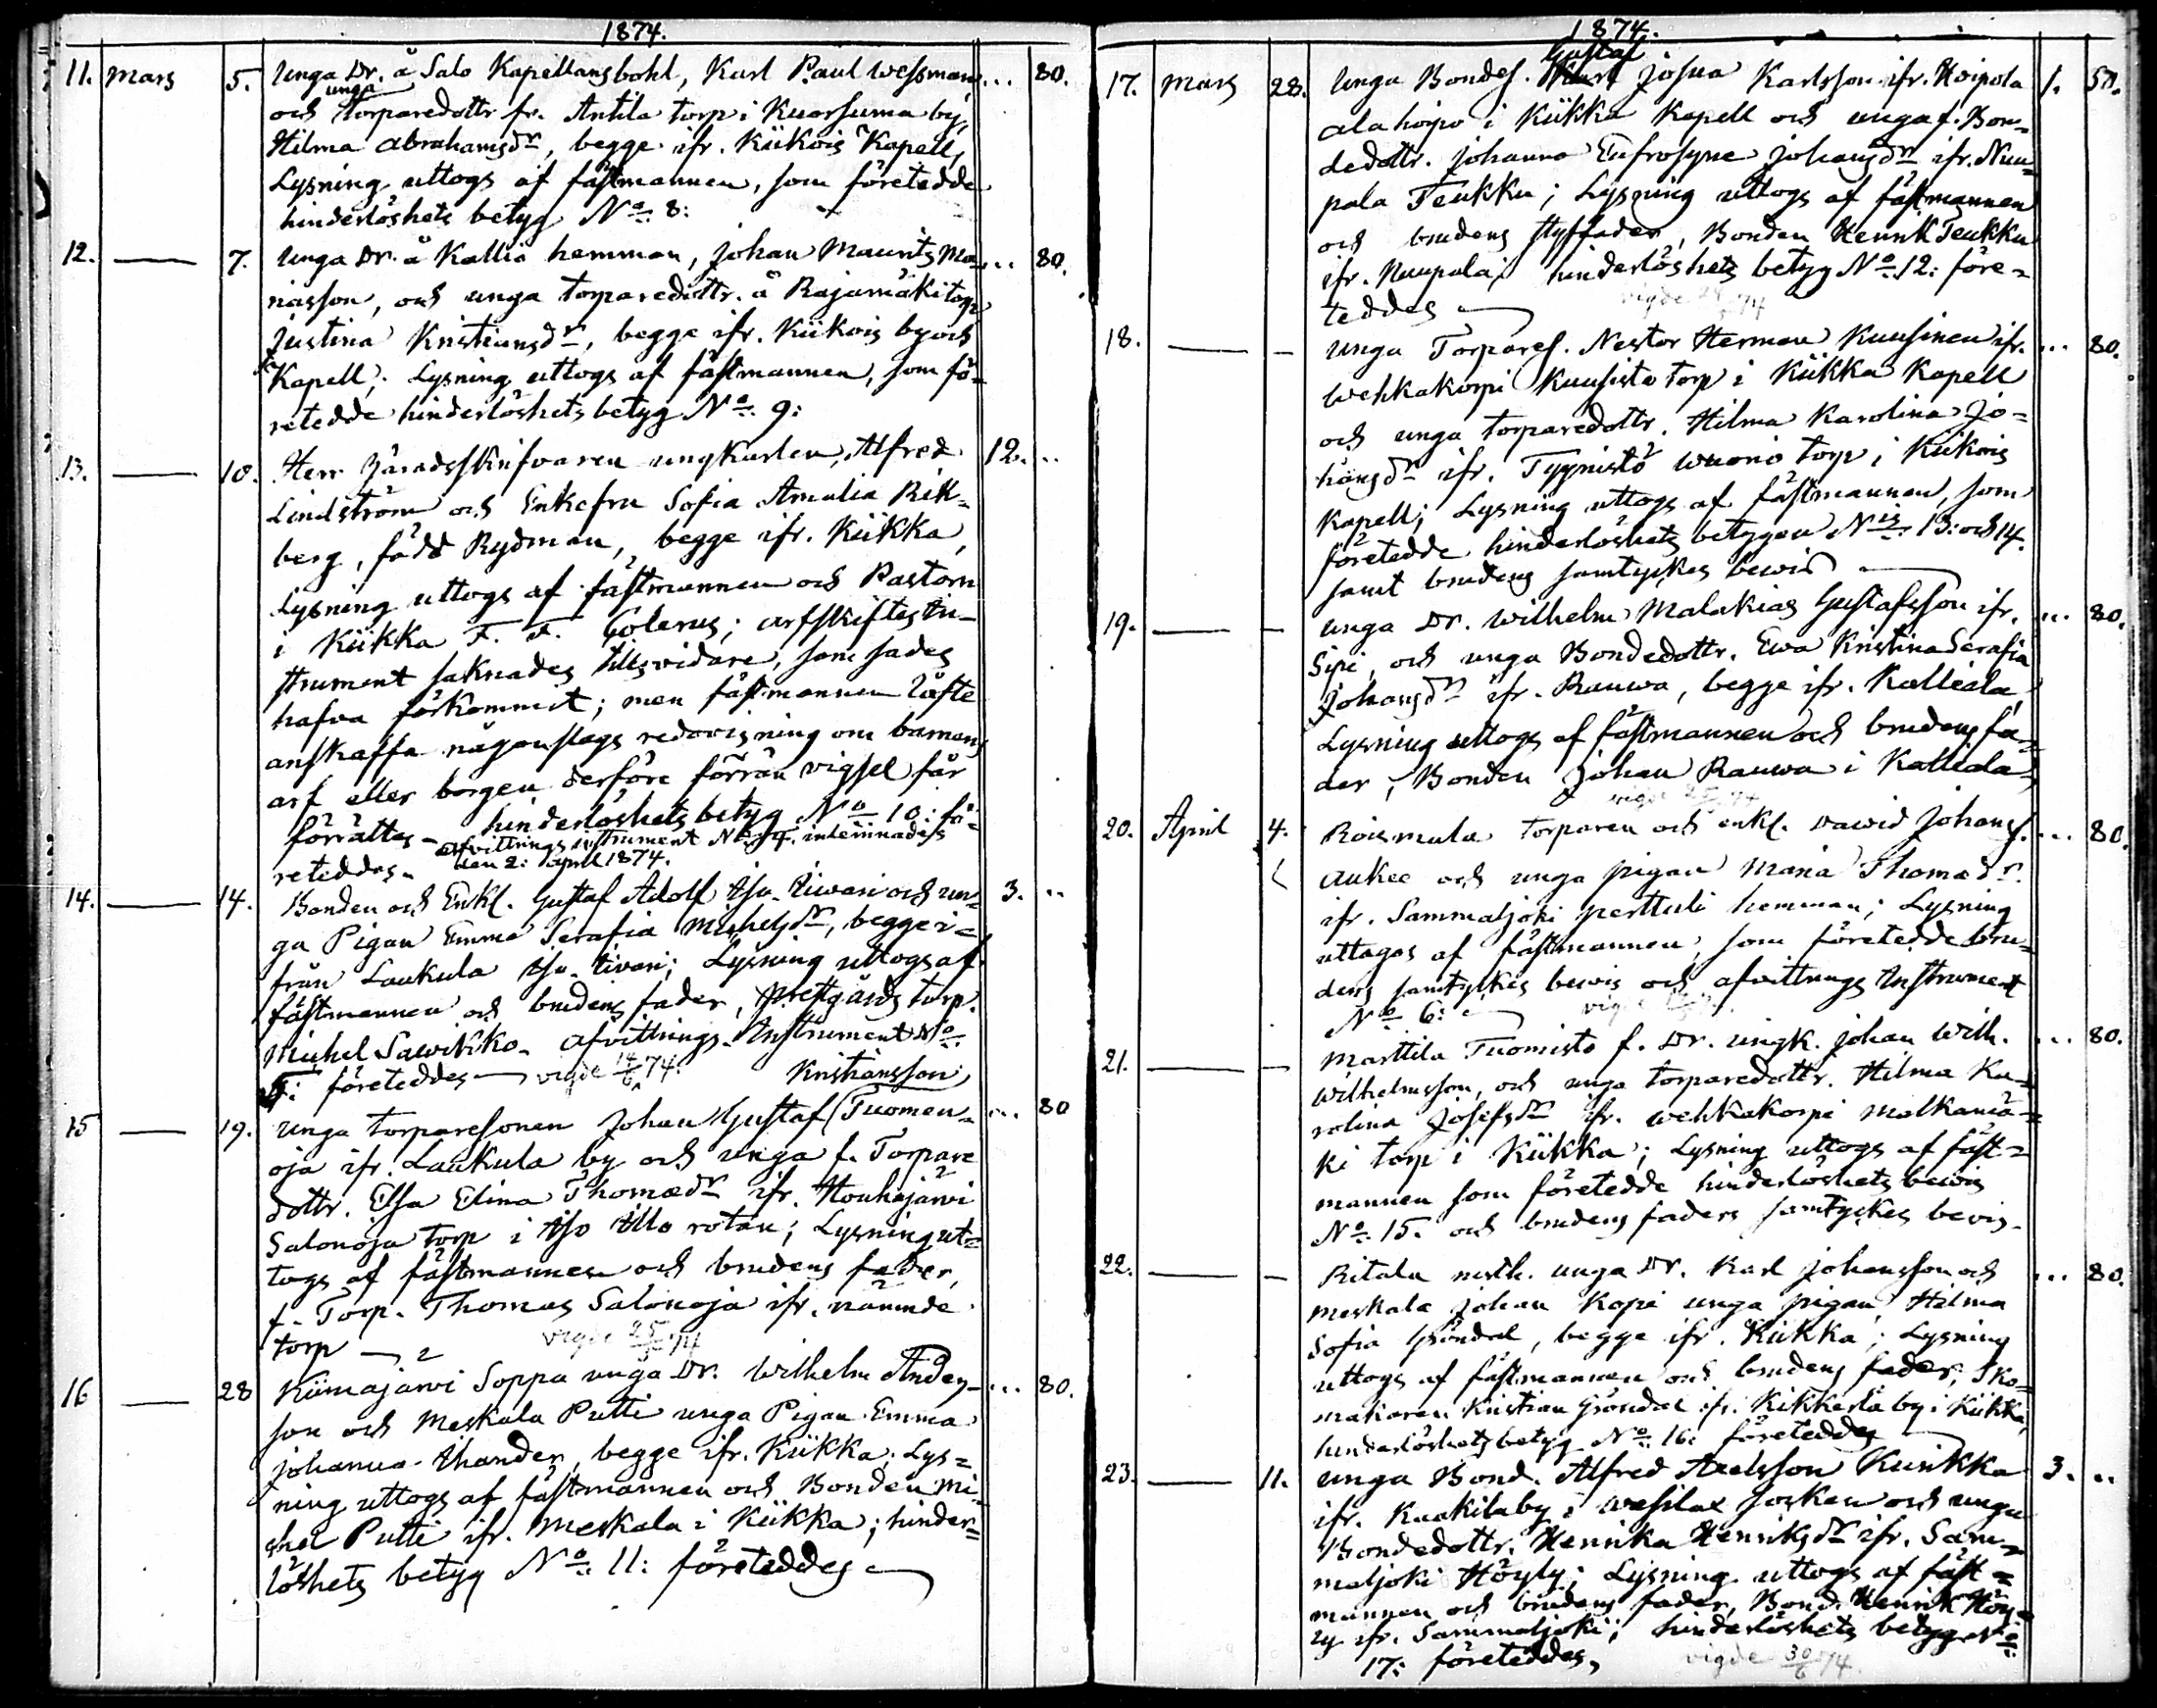 1874.
11. Mars 5. Unga Dr. å Salo Kapellansbohl, Karl Paul Wessman, ... 80.
unga
och torparedottr fr. Anttila torp i Kuorsuma by,
Hilma Abrahamsdr, begge ifr. Kiikois Kapell,
Lysning uttogs af fästmannen, som företedde
hinderlöshets betyg No. 8:
12. — 7. Unga Dr. å Kallia hemman, Johan Maurits Ma- ... 80.
niasson, och unga torparedottr. å Rajamäki torp
Justina Kristiansdr, begge ifr. Kiikois by och
Kapell; Lysning uttogs af fästmannen, som fö-
retedde hinderlöshets betyg No. 9:
13. — 10. Herr Häradsskrifvaren ungkarlen, Alfred 12. ..
Lindström och Enkefru Sofia Amalia Rik-
berg, född Rydman, begge ifr. Kiikka,
Lysning uttogs af fästmannen och Pastorn
i Kiikka F. F. Golenus; arfskiftes In-
strument saknades tillsvidare, som sades
hafva förkommit; men fästmannen löfte
anskaffa någonslags redovisning om barnens
arf eller borgen derföre förrän vigsel får
förrättas - hinderlöshets betyg No 10: fö-
afvittrings instrument No 4. inlemnades
reteddes.
den 2: April 1874.
14. — 14. Bonden och Enkl. Gustaf Adolf Iso-Tiwari och un- 3. ..
ga Pigan Emma Serafia Michelsdr, begge i-
från Laukula Iso-tivari; Lysning uttogs af
fästmannen och brudens fader, Prestgårds torp.
Michel Sawikko. Afvittrings-Instrument No.
5: företeddes — vigde 14/6 74. Kristiansson
15 — 19. Unga torparesonen Johan Gustaf (Tuomen- ... 80
oja ifr. Laukula by och unga f. Torpare
dottr. Elsa Elina Thomædr ifr. Houhajärvi
Salonoja torp i Iso Illo rotan; Lysning ut-
togs af fästmannen och brudens fader,
f. Torp. Thomas Salonoja ifr. nämnde
torp — vigde 25/5 74
16 — 28 Kiimajärvi Soppa unga Dr. Wilhelm Anders- ... 80.
son och Meskala Putti unga Pigan Emma
Johanna Thander, begge ifr. Kiikka; Lys-
ning uttogs af fästmannen och Bonden Mi-
chel Putti ifr. Meskala i Kiikka; hinder-
löshets betyg No. 11: företeddes —
1874.
Gustaf
17. Mars 28. Unga Bondes. Josua Karlsson ifr. Hoipola 1. 50.
Alahoipo i Kiikka Kapell och unga f. Bon-
dedottr. Johanna Eufrosyne Johansdr ifr. Nuu-
pala Teukku; Lysning uttogs af fästmannen
och brudens styffader, Bonden Henrik Teukku
ifr. Nuupala; hinderlöshets betyg No. 12: före-
teddes — vigde 74
18. — - Unga Torpares. Nestor Herman Kuusinen ifr. ... 80.
Wehkakorpi Kuusisto torp i Kiikka Kapell
och unga torparedottr. Hilma Karolina Jo-
hansdr ifr. Tyynistö Wuorio torp i Kiikois
Kapell; Lysning uttogs af fästmannen, som
företedde hinderlöshets betygen Nis. 13: och 14.
samt brudens samtyckes bewis —
19. — - Unga Dr. Wilhelm Malakias Gustafsson ifr. ... 80.
Sipi, och unga Bondedottr. Ewa Kristina Serafia
Johansdr ifr. Rauwa, begge ifr. Kallida,
Lysning uttogs af fästmannen och brudens fa-
der, Bonden Johan Rauwa i Kalliala,
vigde 74
20. April 4. Roismala torparen och enkl. Dawid Johans. ... 80.
Aukee och unga pigan Maria Thomædr.
ifr. Sammaljoki Perttuli hemman; Lysning
uttogos af fästmannen, som företedde bru-
dens samtyckes bewis och afvittrings Instrument
No 6: — vigde
21. — - Marttila Tuomisto f. Dr. ungk. Johan Wilh. ... 80.
Wilhelmsson, och unga torparedottr. Hilma Ka-
rolina Josefsdr ifr. Wehkakorpi Malkamä-
ki torp i Kiikka; Lysning uttogs af fäst-
mannen som företedde hinderlöshets bewis
No. 15. och brudens faders samtyckes bevis.
22. — - Ritala nusth. unga Dr. Karl Johansson och ... 80.
Meskala Johan Kopi unga pigan Hilma
Sofia Gröndal, begge ifr. Kiikka; Lysning
uttogs af fästmannen och brudens fader, Sko-
makaren Kristian Gröndal ifr. Kikkerlä by i Kiikka,
hinderlöshets betyg No. 16: företeddes
23. — 11. Unga Bond. Alfred Axelsson Kurikka 3. ..
ifr. Kaakila by i Wesilax Socken och unga
Bondedottr. Henrika Henriksdr ifr. Sam-
maljoki Höyly; Lysning uttogs af fäst-
mannen och brudens fader, Bond. Henrik Höy-
ly ifr. Sammaljoki; hinderlöshets betyg No.
17: företeddes, vigde 30/6 74.